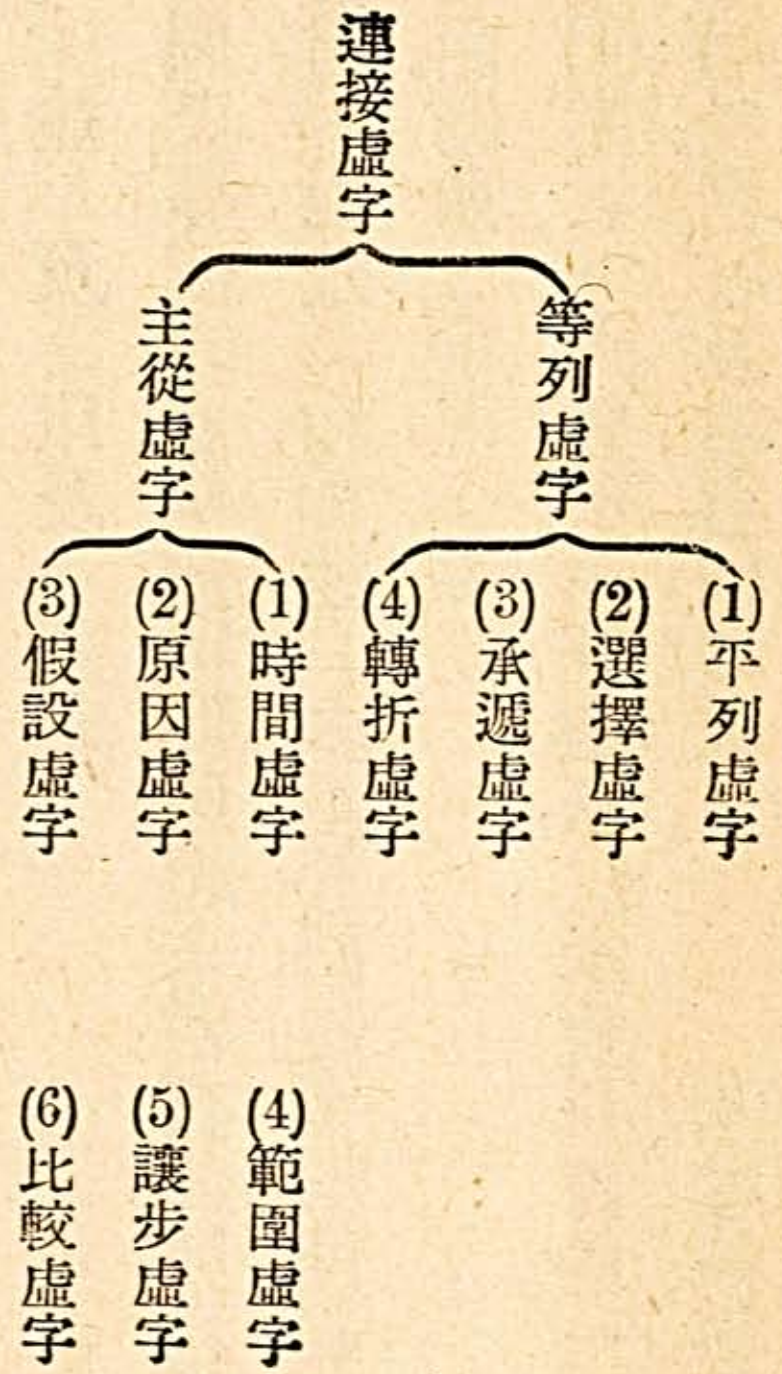 連接虛字
等列虛字
(1)平列虛字
(2)選擇虛字
(3)承遞虛字
(4)轉折虛字
主從虛字
(1)時間虛字
(2)原因虛字
(3)假設虛字
(4)範圍虛字
(5)讓步虛字
(6)比較虛字